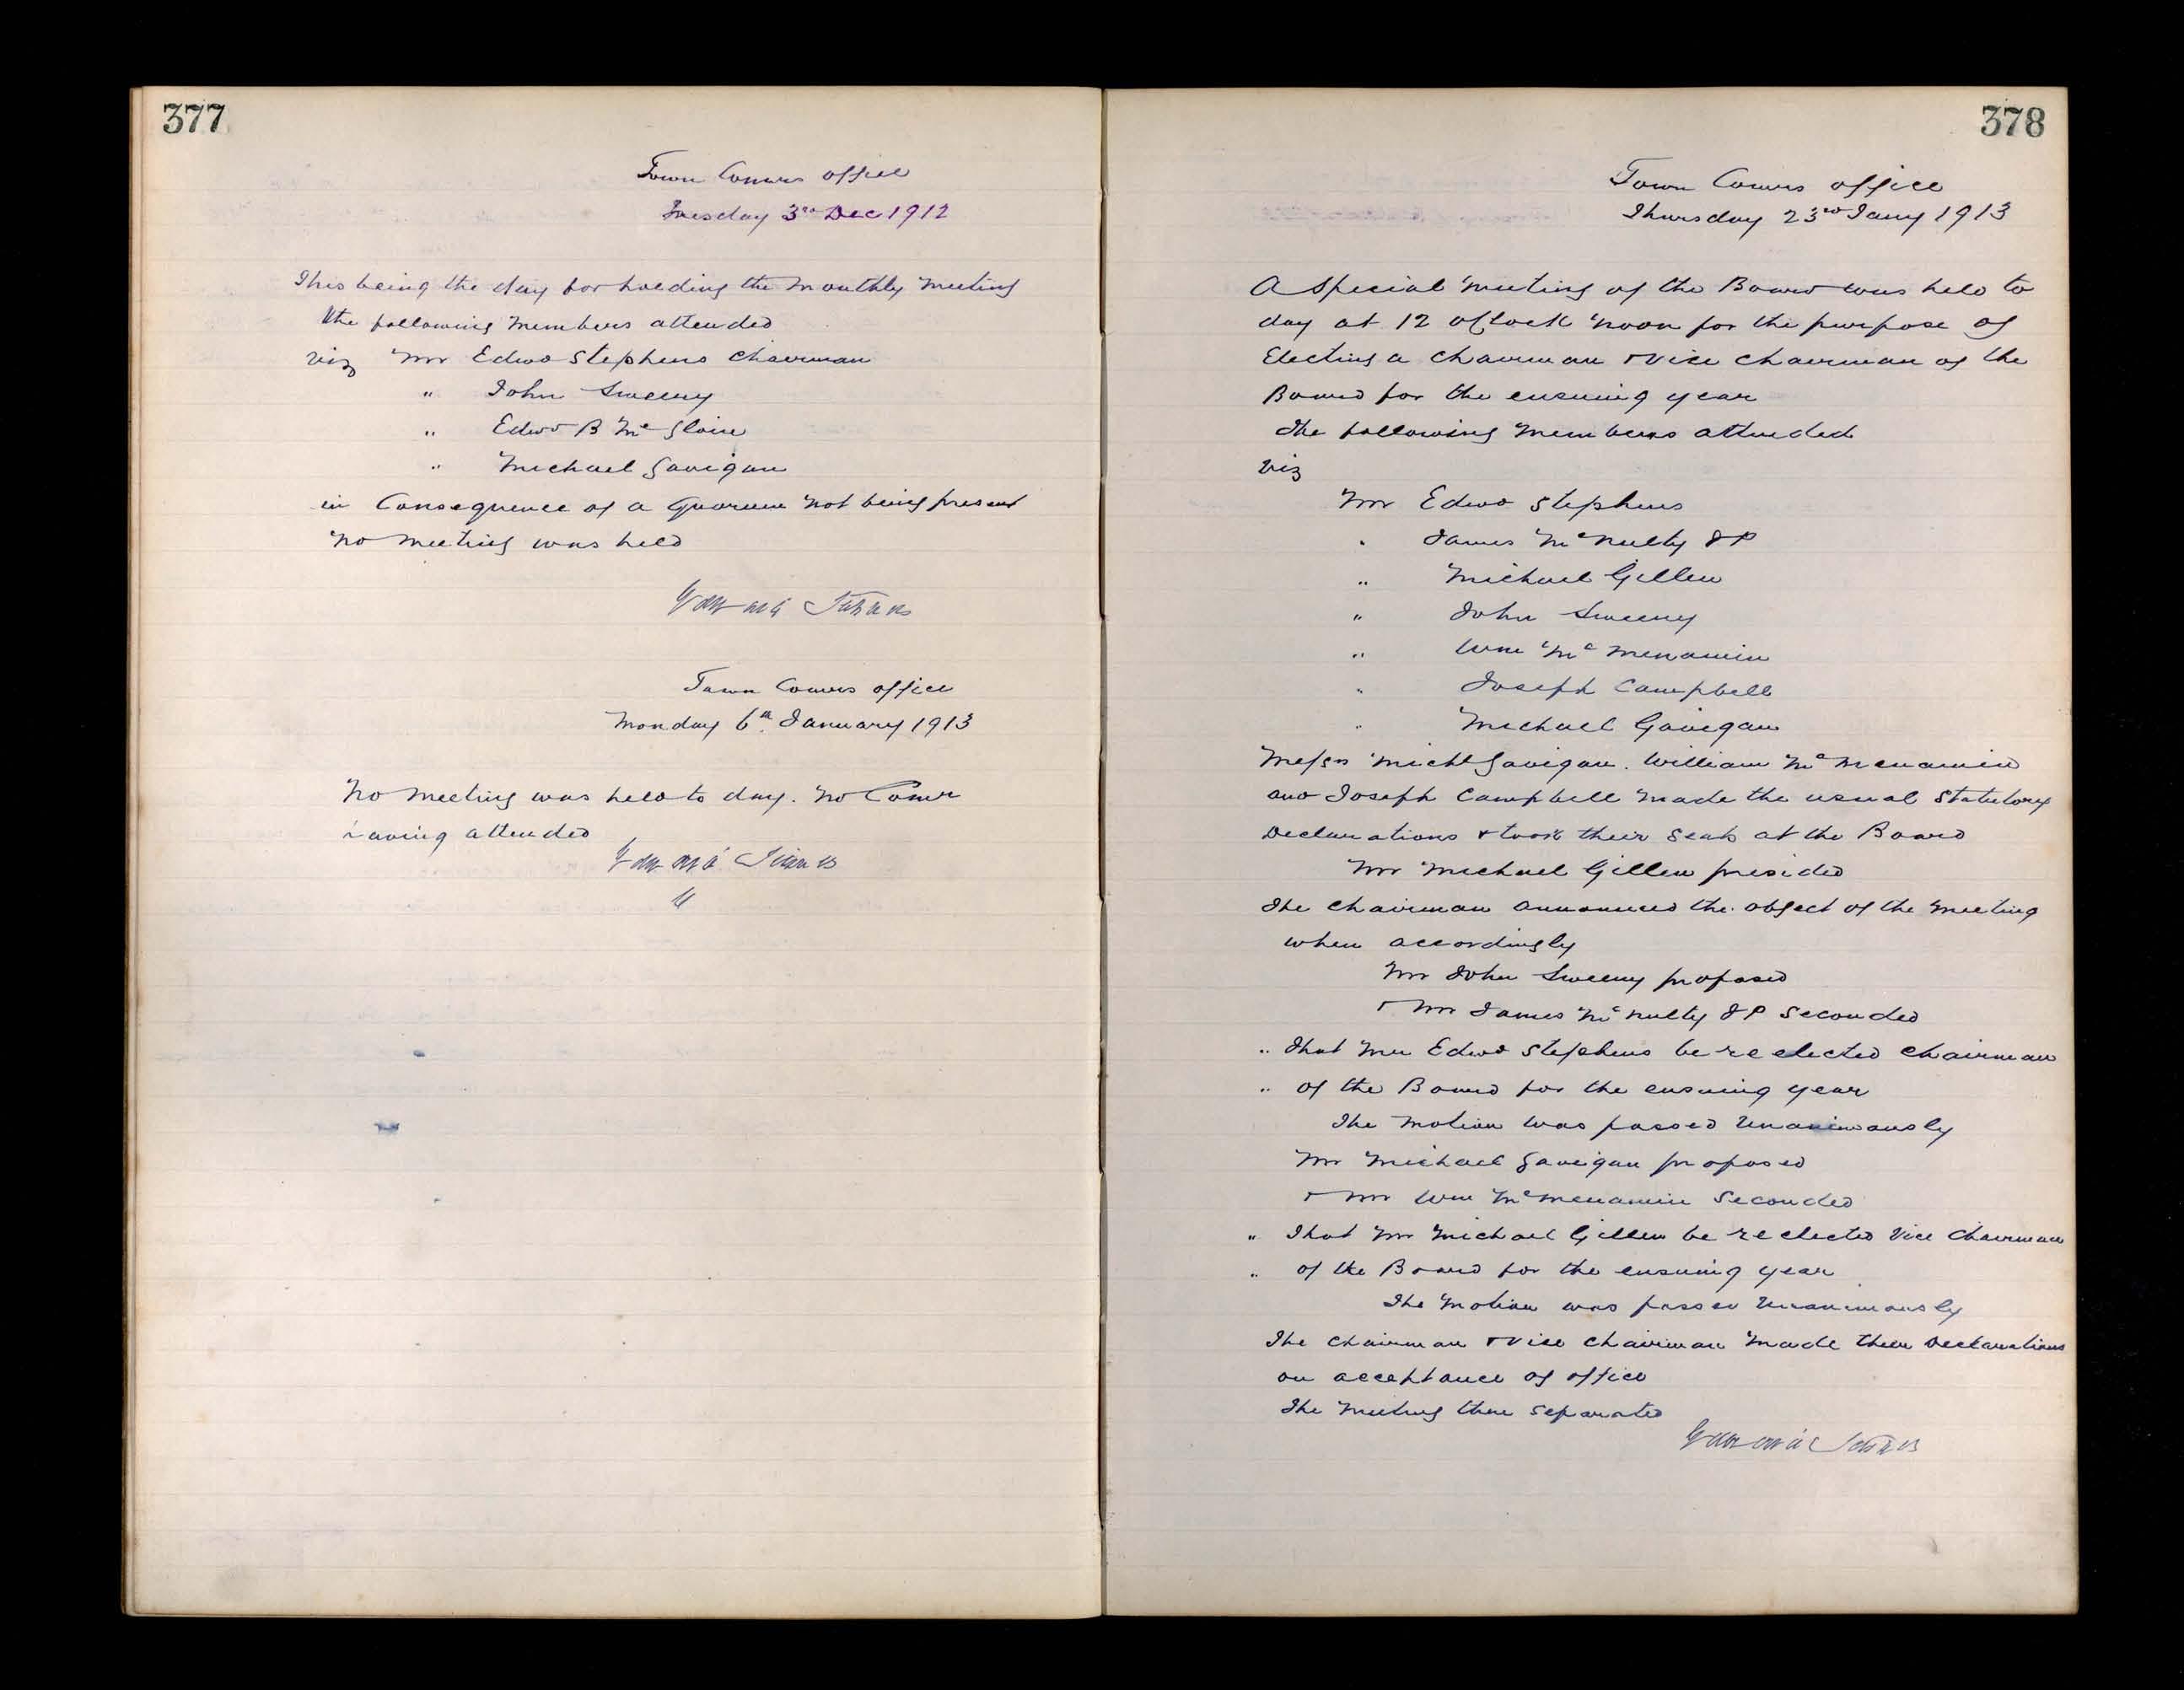 377
Town Comrs office
Tuesday 3rd Dec 1912
This being the day for holding the Monthly Meeting
the following Members attended
viz Mr Edwd Stephens Chairman
" John Sweeny
" Edwd B McGloin
" Michael Gavigan
in Consequence of a Quorum not being present
No Meeting was held
Edward Stephens
Town Comrs office
Monday 6th January 1913
No Meeting was held to day. No Comr
having attended
Edward Stephens
378
Town Comrs office
Thursday 23rd Jany 1913
A Special Meeting of the Board was held to
day at 12 oClock noon for the purpose of
Electing a Chairman & Vice Chairman of the
Board for the ensuing year
The following Members attended
Viz
Mr Edwd Stephens
" James McNulty JP
" Michael Gillen
" John Sweeny
" Wm McMenamin
" Joseph Campbell
" Michael Gavigan
Messrs Michl Gavigan. William McMenamin
and Joseph Campbell Made the usual Statutory
Declarations & took their Seats at the Board
Mr Michael Gillen presided
The Chairman announced the object of the Meeting
when accordingly
Mr John Sweeny proposed
& Mr James McNulty JP Seconded
" That Mr Edwd Stephens be re elected Chairman
" of the Board for the ensuing year
The Motion was passed Unanimously
Mr Michael Gavigan proposed
& Mr Wm McMenamin Seconded
" That Mr Michael Gillen be re elected Vice Chairman
" of the Board for the ensuing year
The Motion was passed Unanimously
The Chairman & Vice Chairman Made their Declarations
on acceptance of office
The Meeting then Separated
Edward Stephens